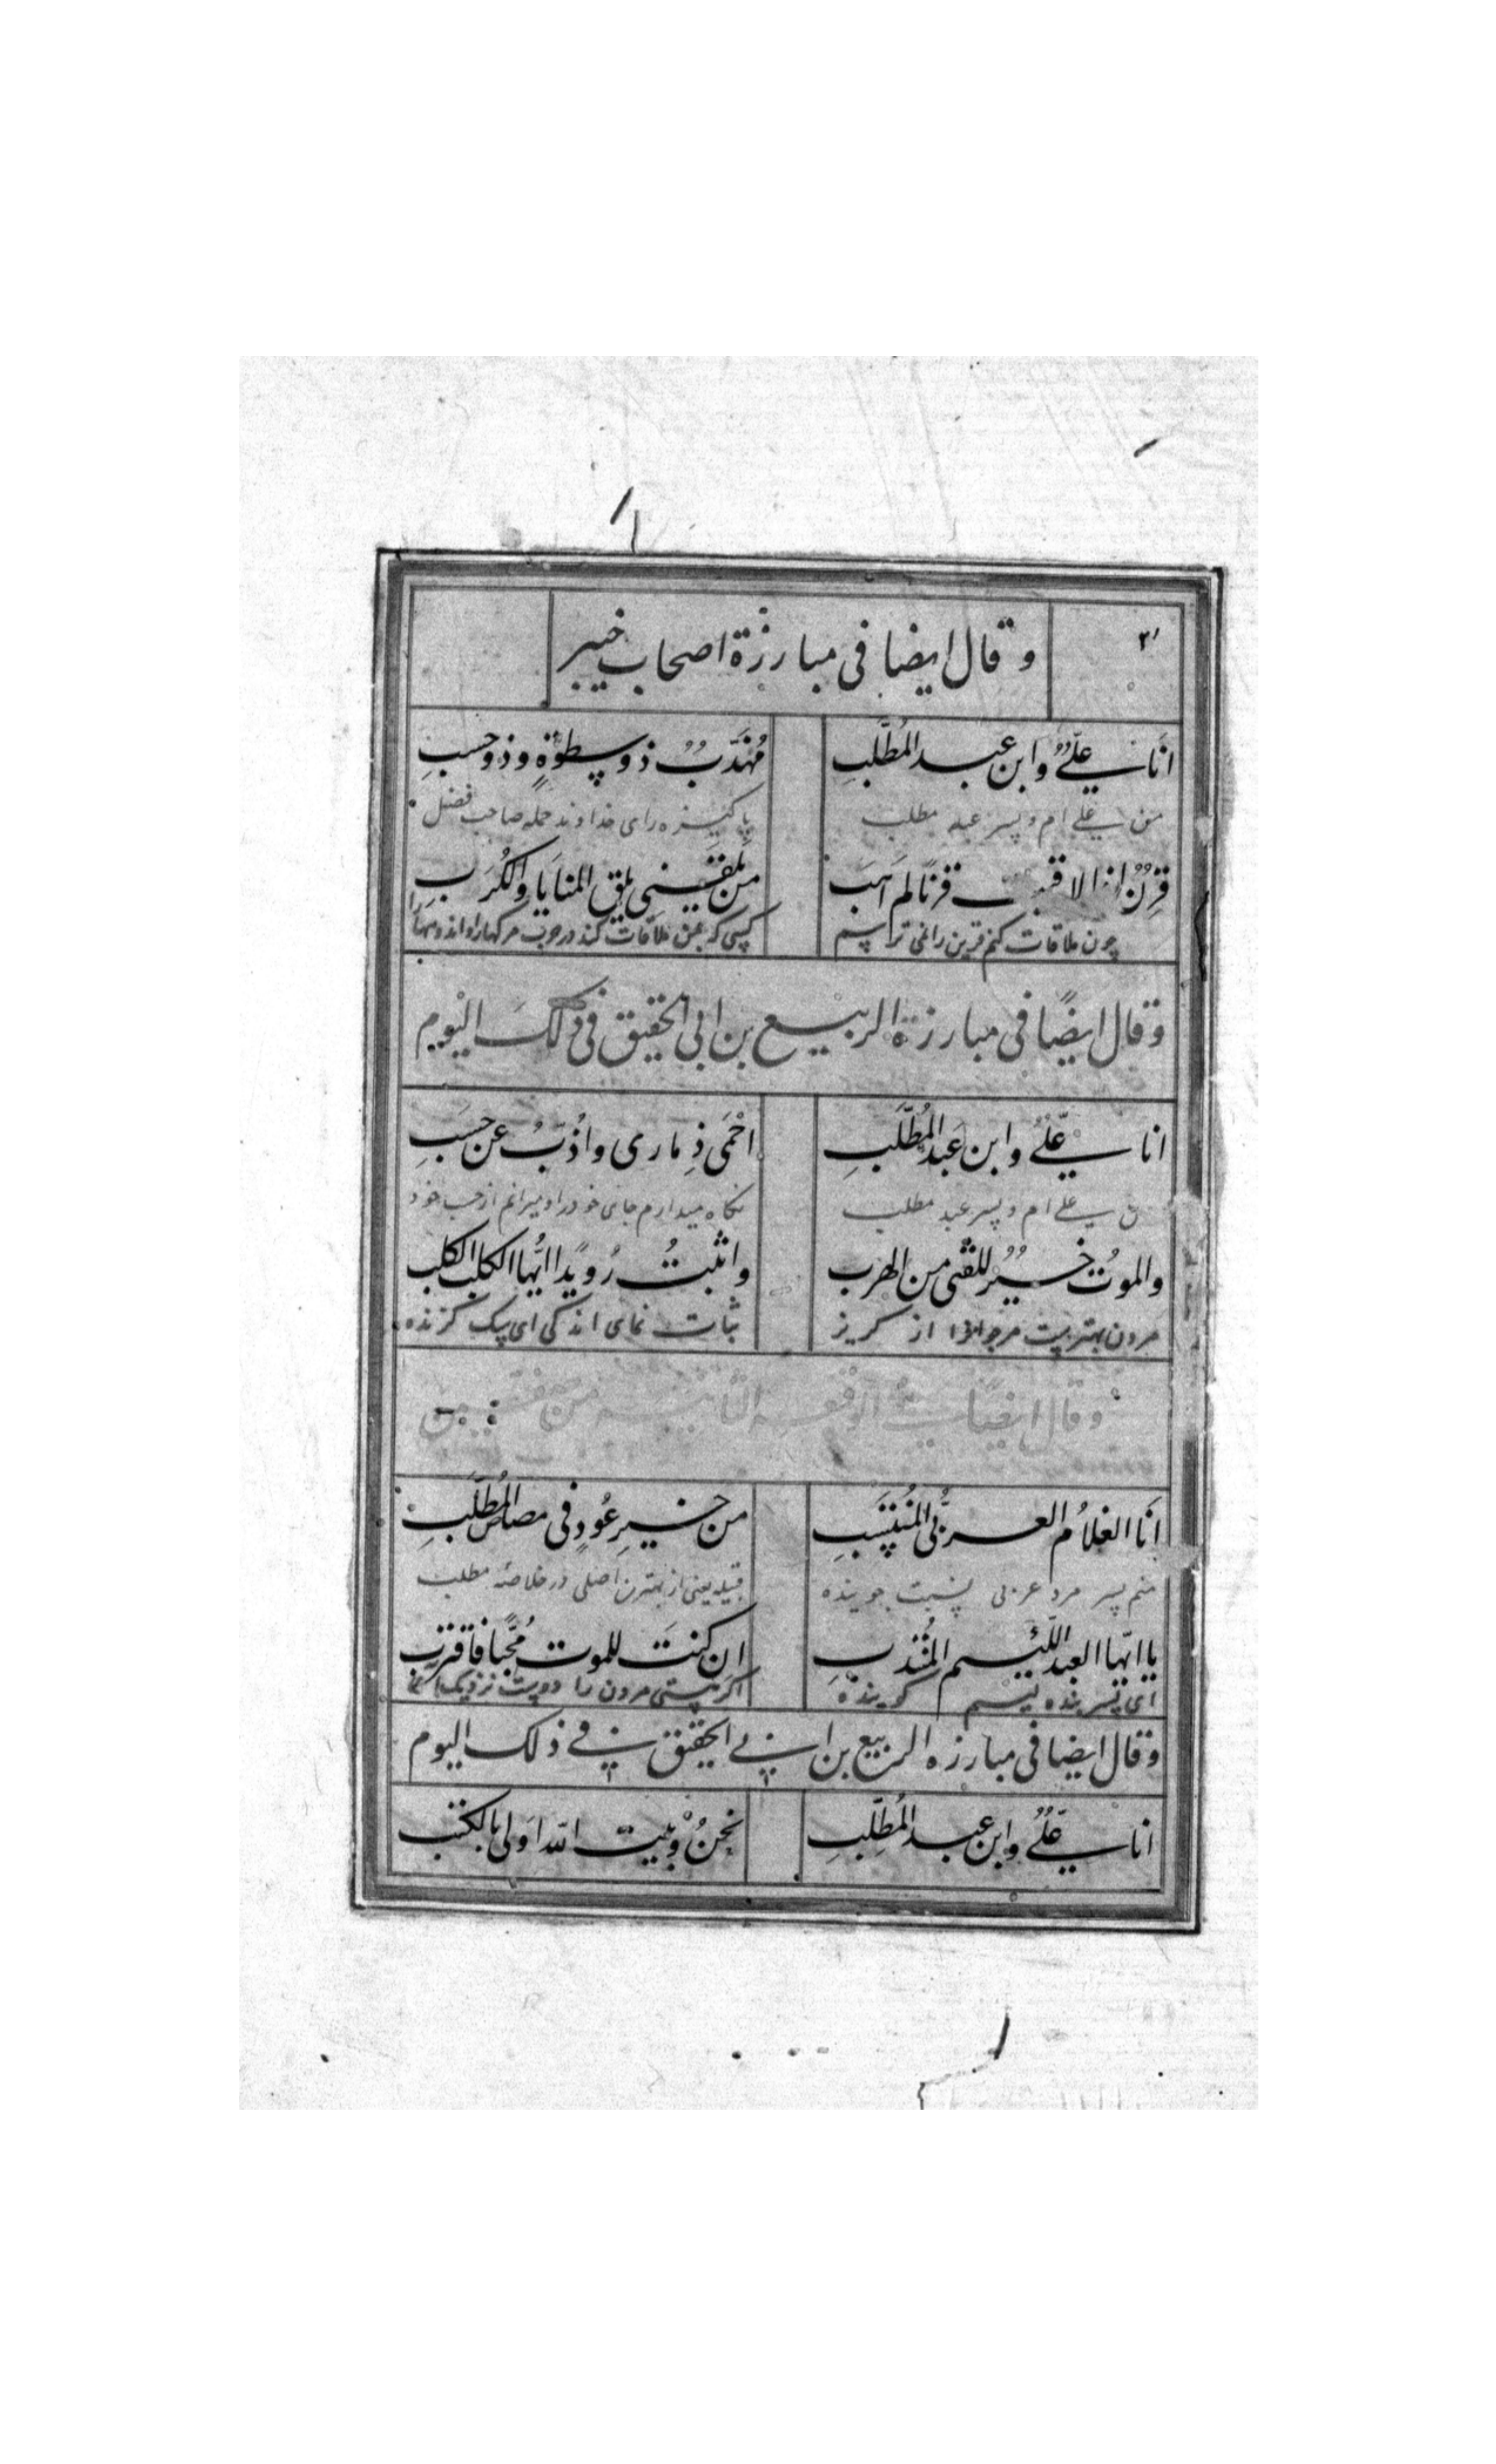 وقال ايضا فى مبارزة اصحاب خيبر
انا علىٌّ وابن عبد المطّلب مُهذّبٌ ذو سطوةٍ وذو حسبِ
من على ام و پسر عبد مطلب پاكيزه راى خداوند حمله صاحب فضل
قِرنٌ اذا لاقيت قرنًا لم اهب من يلقنى يلق المنايا والكُرَبِ
چون ملاقات كنم قرين را نمى ترسم كسى كه بمن ملاقات كند در حرب مركها را و اندوهها را
وقال ايضًا فى مبارزة الربيع بن ابى الحقيق فى ذلكَ اليوم
انا علىٌّ وابن عبد المُطّلبِ احْمى ذِمارى واذُبّ عن حسَبِ
على ام و پسر عبد مطلب نكاه ميدارم جاى خود را و ميرانم از حسب خود
والموتُ خيرٌ للفتى من الهرب واثبتُ رُويدًا ايُّها الكلب الكلب
مردن بهترست مر جوانرا از كريز ثبات نماى اندكى اى سك كزنده
وقال ايضًا
انَا الغلامُ العربىُّ المُنتسبِ من خيرِ عُودٍ فى مصاص المُطّلبِ
منم پسر مرد عربى نسبت جوينده قبيله يعنى از بهترين اصلى در خلاصه مطلب
يا ايّها العبد اللّئيم المُنتدبِ ان كنتَ للموت مُحبًّا فاقترب
اى بنده لئيم اكر هستى مردن را دوست نزديك
وقال ايضا فى مبارزه الربيع بن ابى الحقيق فى ذلك اليوم
انا علىٌّ وابن عبد المُطّلبِ نحنُ وبيت الله اولى بالكتب